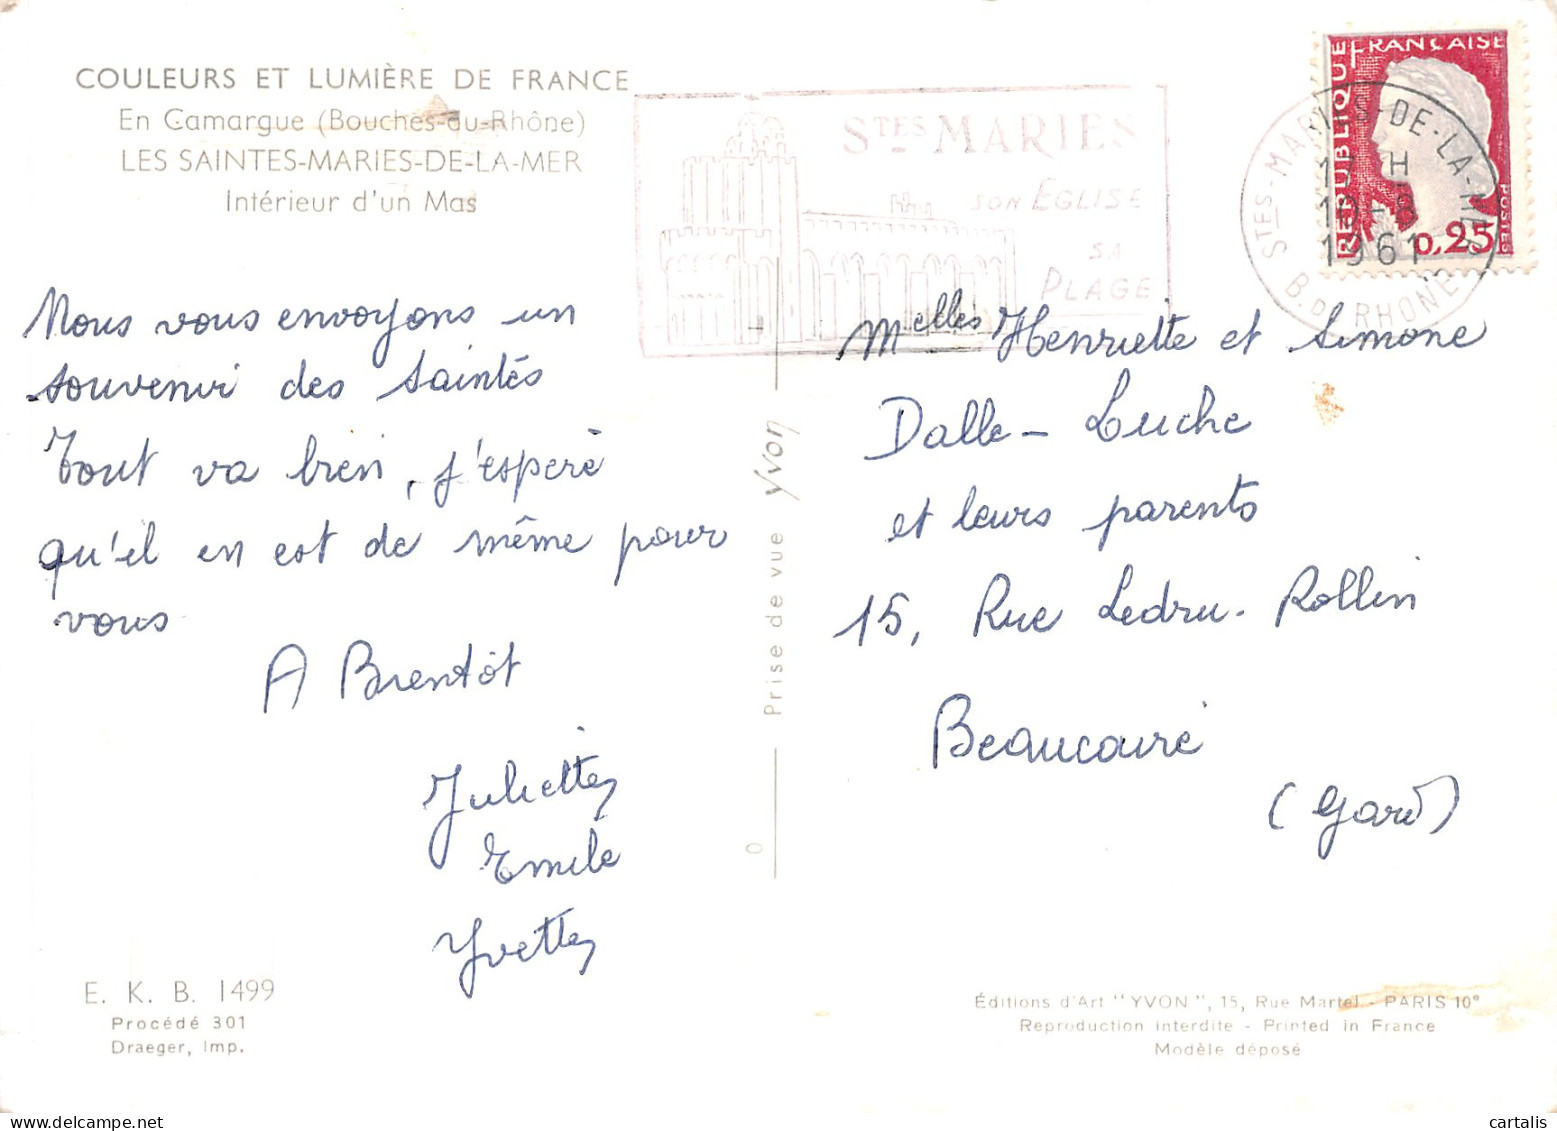 COULEURS ET LUMIÈRE DE FRANCE
En Camargue (Bouches-du-Rhône)
LES SAINTES-MARIES-DE-LA-MER
Intérieur d'un Mas
STES MARIES
SON ÉGLISE
SA
PLAGE
RÉPUBLIQUE FRANÇAISE
0,25
POSTES
STES-MARIES-DE-LA-MER
17 H
10-8
1961
B. DU RHONE
Nous vous envoyons un
souvenir des Saintes
Tout va bien, j'espère
qu'il en est de même pour
vous
A Bientôt
Juliette,
Emile
Yvette,
Prise de vue Yvon
0
Melles Henriette et Simone
Dalle-Luche
et leurs parents
15, Rue Ledru-Rollin
Beaucaire
(Gard)
E. K. B. 1499
Procédé 301
Draeger, Imp.
Éditions d'Art "YVON", 15, Rue Martel - PARIS 10e
Reproduction interdite - Printed in France
Modèle déposé
cartalis